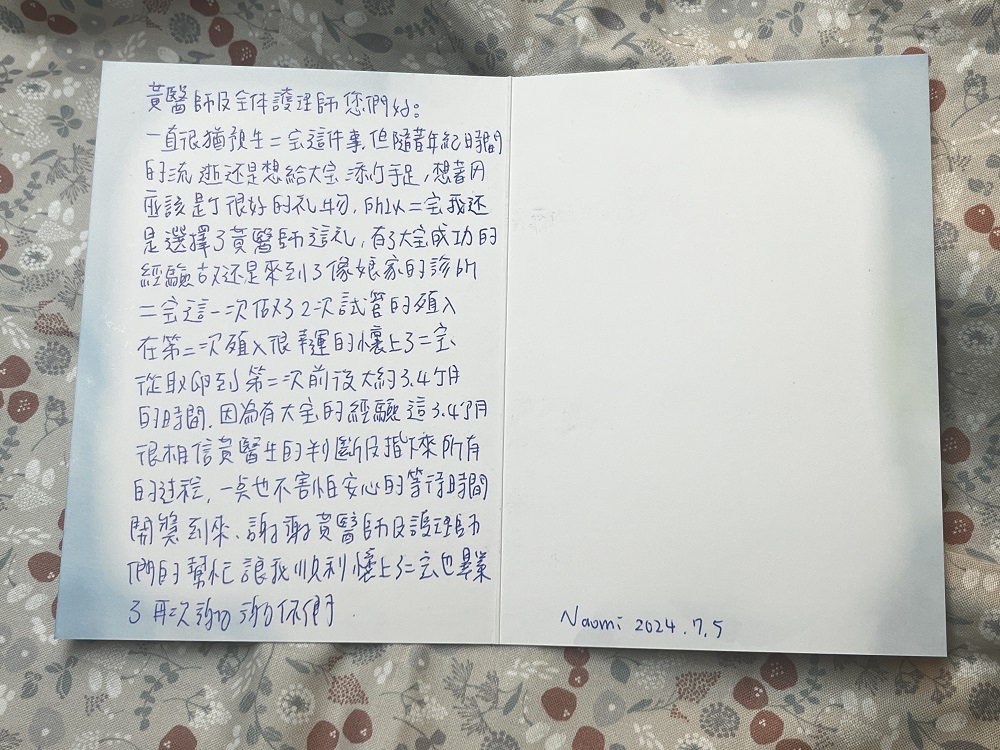 黃醫師及全体護理師您們好:
一直很猶豫生二宝這件事,但隨著年紀時間
的流逝还是想給大宝添个手足,想著用
應該是个很好的礼物,所以二宝我还
是選擇了黃醫師這礼,有了大宝成功的
經驗故还是來到了像娘家的診所
二宝這一次做了2次試管的殖入
在第二次殖入很幸運的懷上了二宝
從取卵到第二次前後大約3.4个月
的時間.因為有大宝的經驗這3.4个月
很相信黃醫生的判斷及指下來所有
的过程,一点也不害怕安心的等待時間
開獎到來、謝謝黃醫師及護理師
們的幫忙讓我順利懷上了二宝也畢業
了再次謝謝你們.
Naomi 2024.7.5